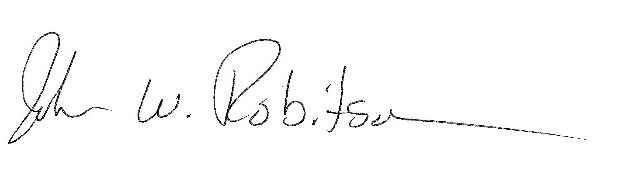 John W. Robitson